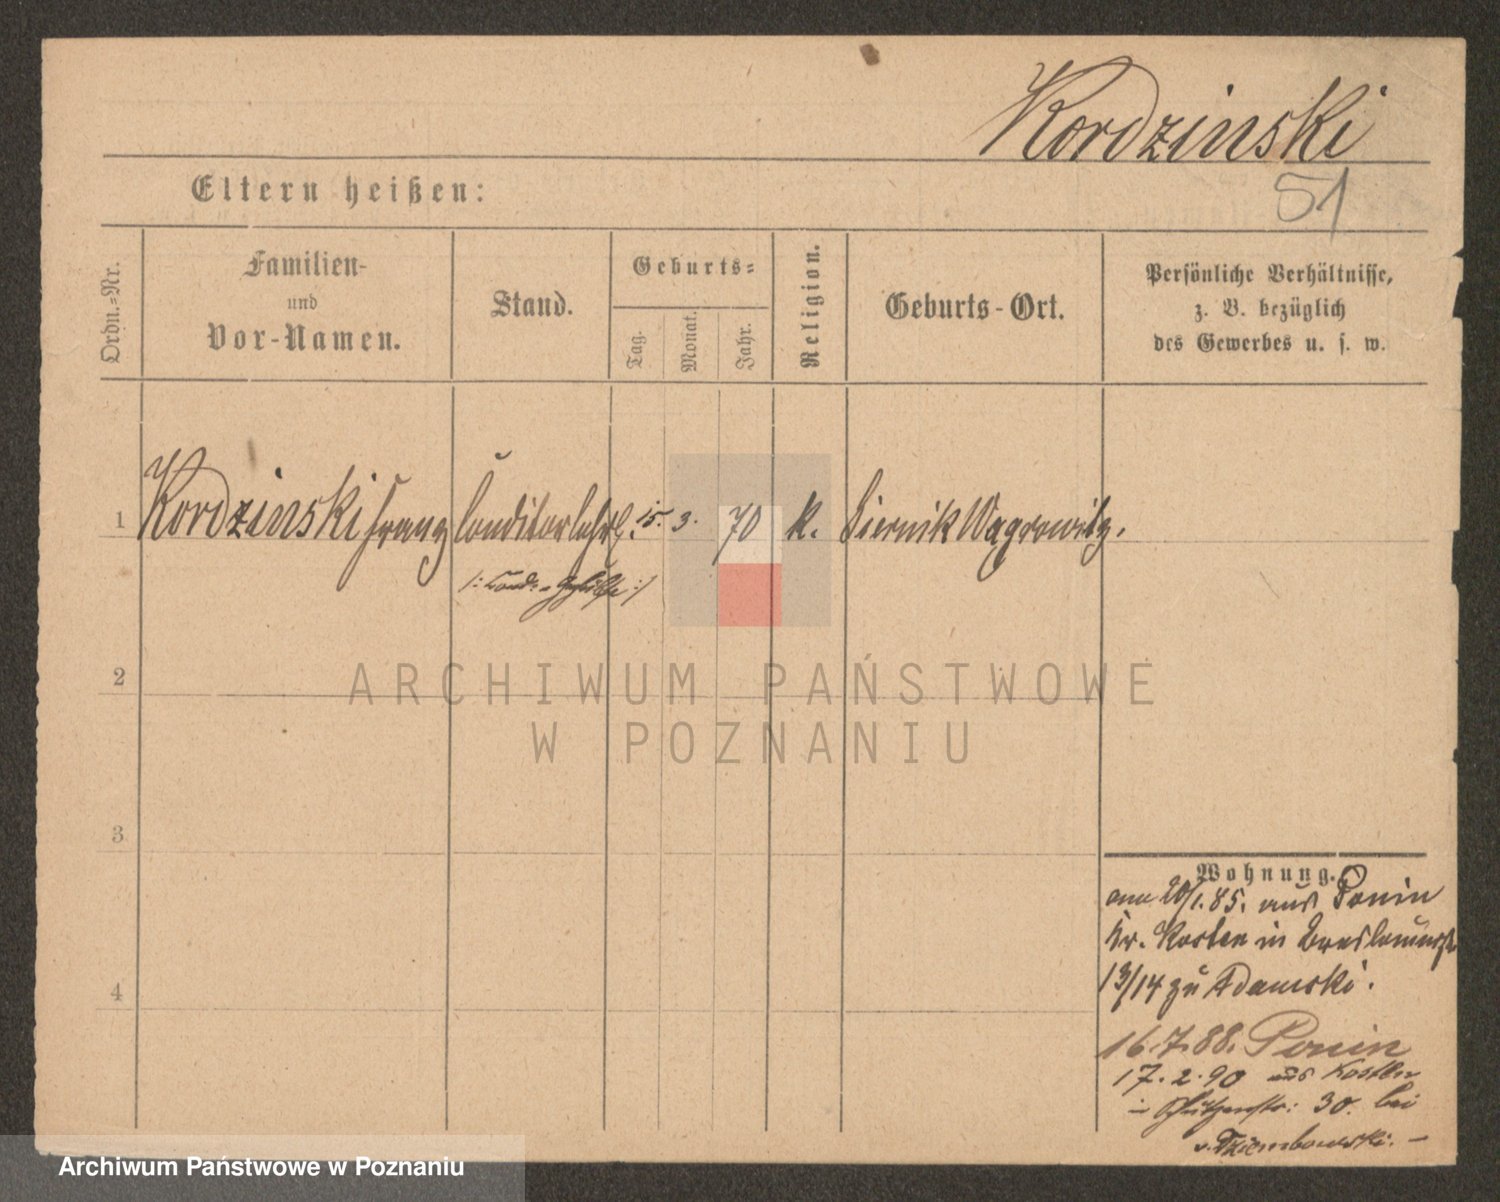 Kordzinski
51
Eltern heißen:
Ordn.=Nr.
Familien-
und
Vor-Namen.
Stand.
Geburts=
Tag.
Monat.
Jahr.
Religion.
Geburts-Ort.
Persönliche Verhältnisse,
z. B. bezüglich
des Gewerbes u. s. w.
1 Kordzinski Franz Conditorlehrl. 15. 3. 70 k. Siernik Wagrowitz.
/: Cond.-Gehülfe :/
2
3
4
Wohnung.
am 20/1.85. aus Ponin
Kr. Kosten in Breslauerstr
13/14 zu Adamski.
16.7.88. Ponin
17.2.90 aus Kosten
in Schützenstr: 30. bei
v. Dziembowski. –
ARCHIWUM PAŃSTWOWE
W POZNANIU
Archiwum Państwowe w Poznaniu